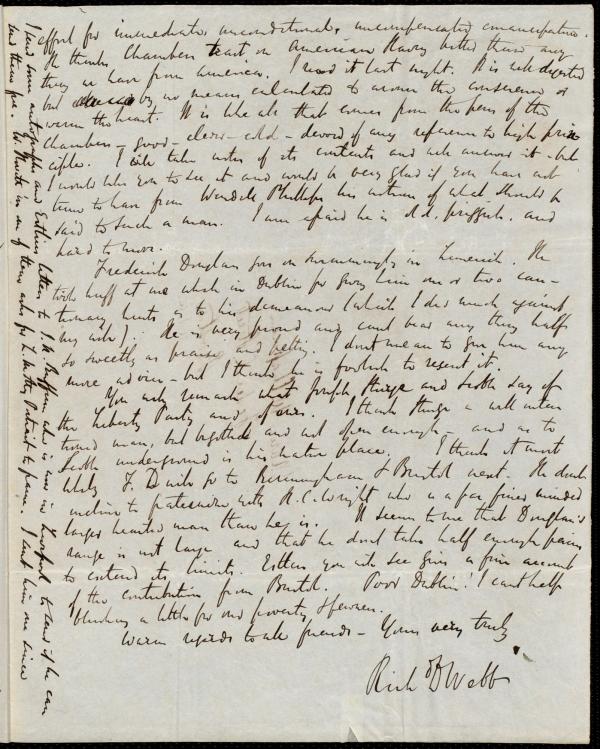 effort for immediate, unconditional, uncompensated emancipation.
He thinks Chambers tract on American Slavery better than any
they have from America. I read it last night. It is well digested
but by no means calculated to arouse the conscience or
warm the heart. It is like all that comes from the pens of the
Chambers - good - clever - cold - devoid of any reference to high prin
ciple. I will take notes of its contents and answer it - but
I would like you to see it and would be very glad if you have not
time to have from Wendell Phillips his notion of what should be
said to such a man. I am afraid he is old, priggish, and
hard to move.
Frederick Douglass goes on swimmingly in Limerick. He
took huff at me while in Dublin for giving him one or two cau-
tionary hints as to his demeanour (which I did much against
my will). He is very proud and cant bear any thing half
so sweetly as praise and petting. I dont mean to give him any
more advice - but I think he is foolish to resent it.
You will remark what Joseph Sturge and Scoble say of
the Liberty Party and of ours. I think Sturge a well inten
tioned man, but bigotted and not open enough - and as to
Scoble underground is his native place. I think it most
likely F. D will go to Birmingham & Bristol next. He dont
incline to fraternize with H. C. Wright who is a far finer minded
larger hearted man than he is. It seems to me that Douglass's
range is not large and that he dont take half enough pains
to extend its limits. Esther you will see gives a fine account
of the contribution from Bristol. Poor Dublin! I cant help
blushing a little for our poverty & fewness.
Warm regards to all friends - Yours very truly
Rich D Webb
I send some autographs and Esthers letters to J. N. Buffum who is now in Liverpool to send if he can
send them free. W. Martin in one of them asks for L. Motts Portrait to frame. I sent him one since